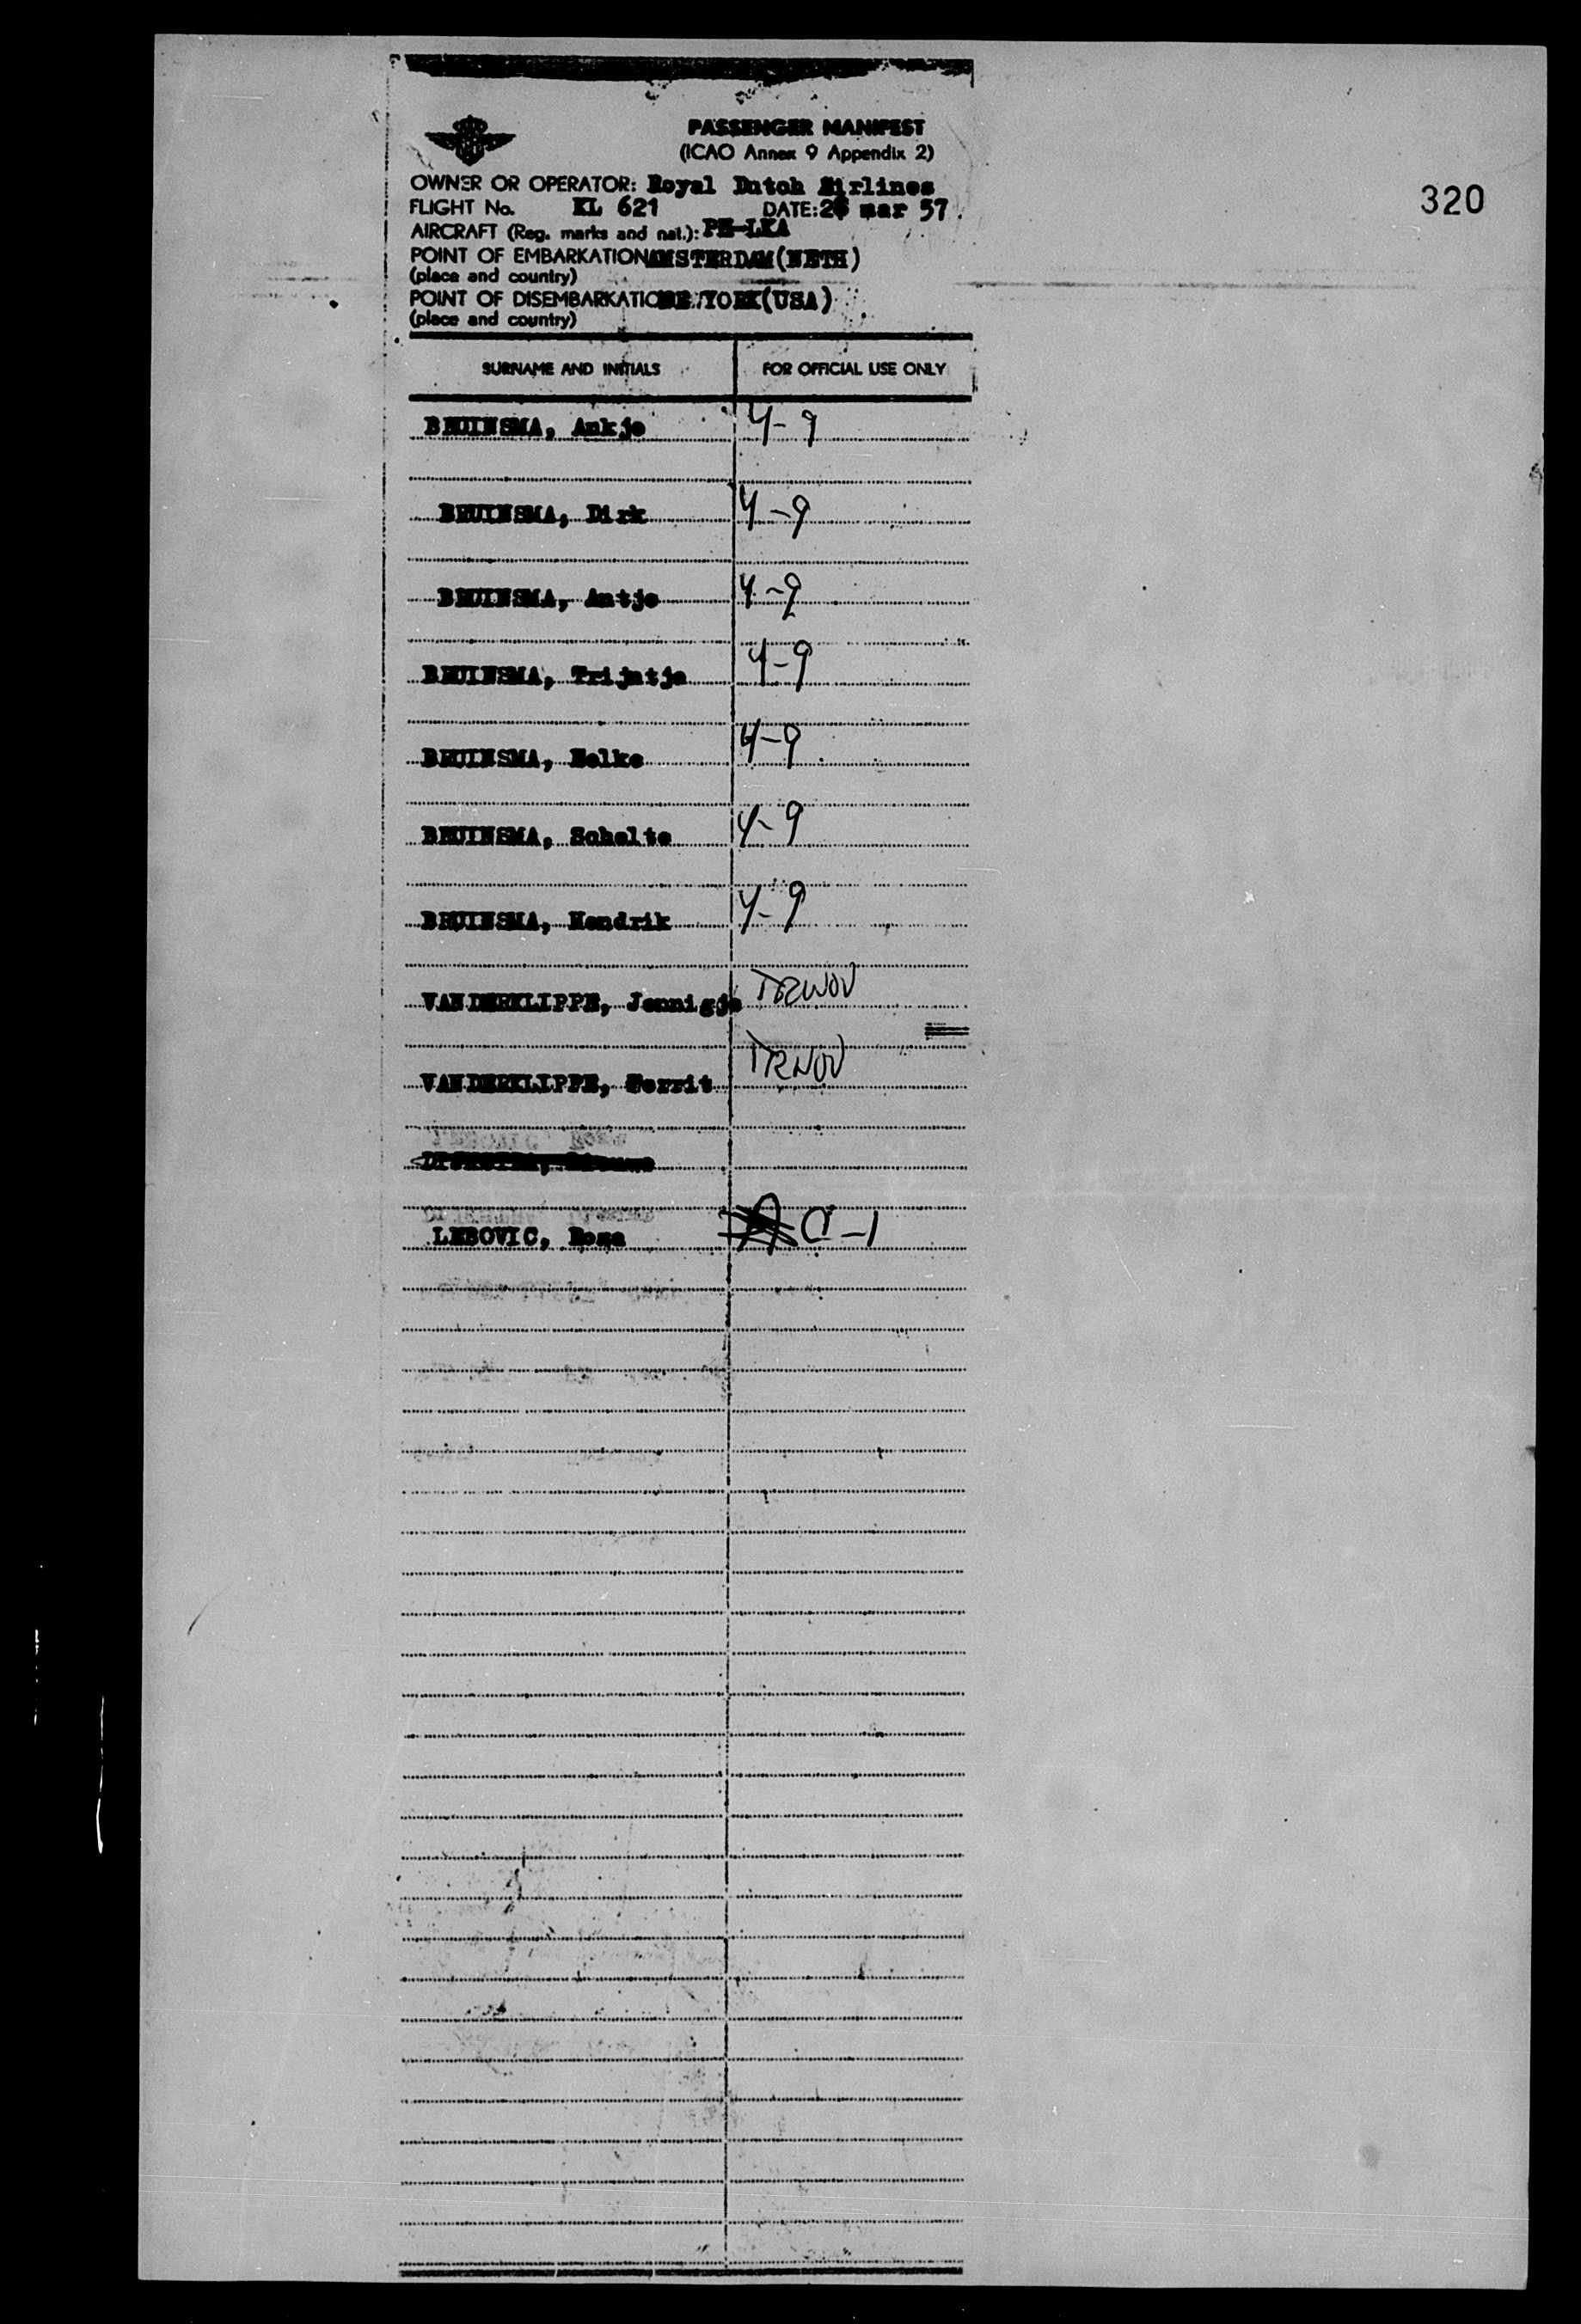 PASSENGER MANIFEST
(ICAO Annex 9 Appendix 2)
320
OWNER OR OPERATOR: Royal Dutch Airlines
FLIGHT No. KL 621 DATE: mar 57
AIRCRAFT (Reg. marks and nat.): PH-LKA
POINT OF EMBARKATION AMSTERDAM(NETH)
(place and country)
POINT OF DISEMBARKATION YORK(USA)
(place and country)
SURNAME AND INITIALS FOR OFFICIAL USE ONLY
BRUINSMA, Ankje 4-9
BRUINSMA, Dirk 4-9
BRUINSMA, Antje 4-9
BRUINSMA, Trijntje 4-9
BRUINSMA, 4-9
BRUINSMA, Schelte 4-9
BRUINSMA, Hendrik 4-9
VANDERKLIPPE, Jennigje
VANDERKLIPPE,
LEBOVIC,